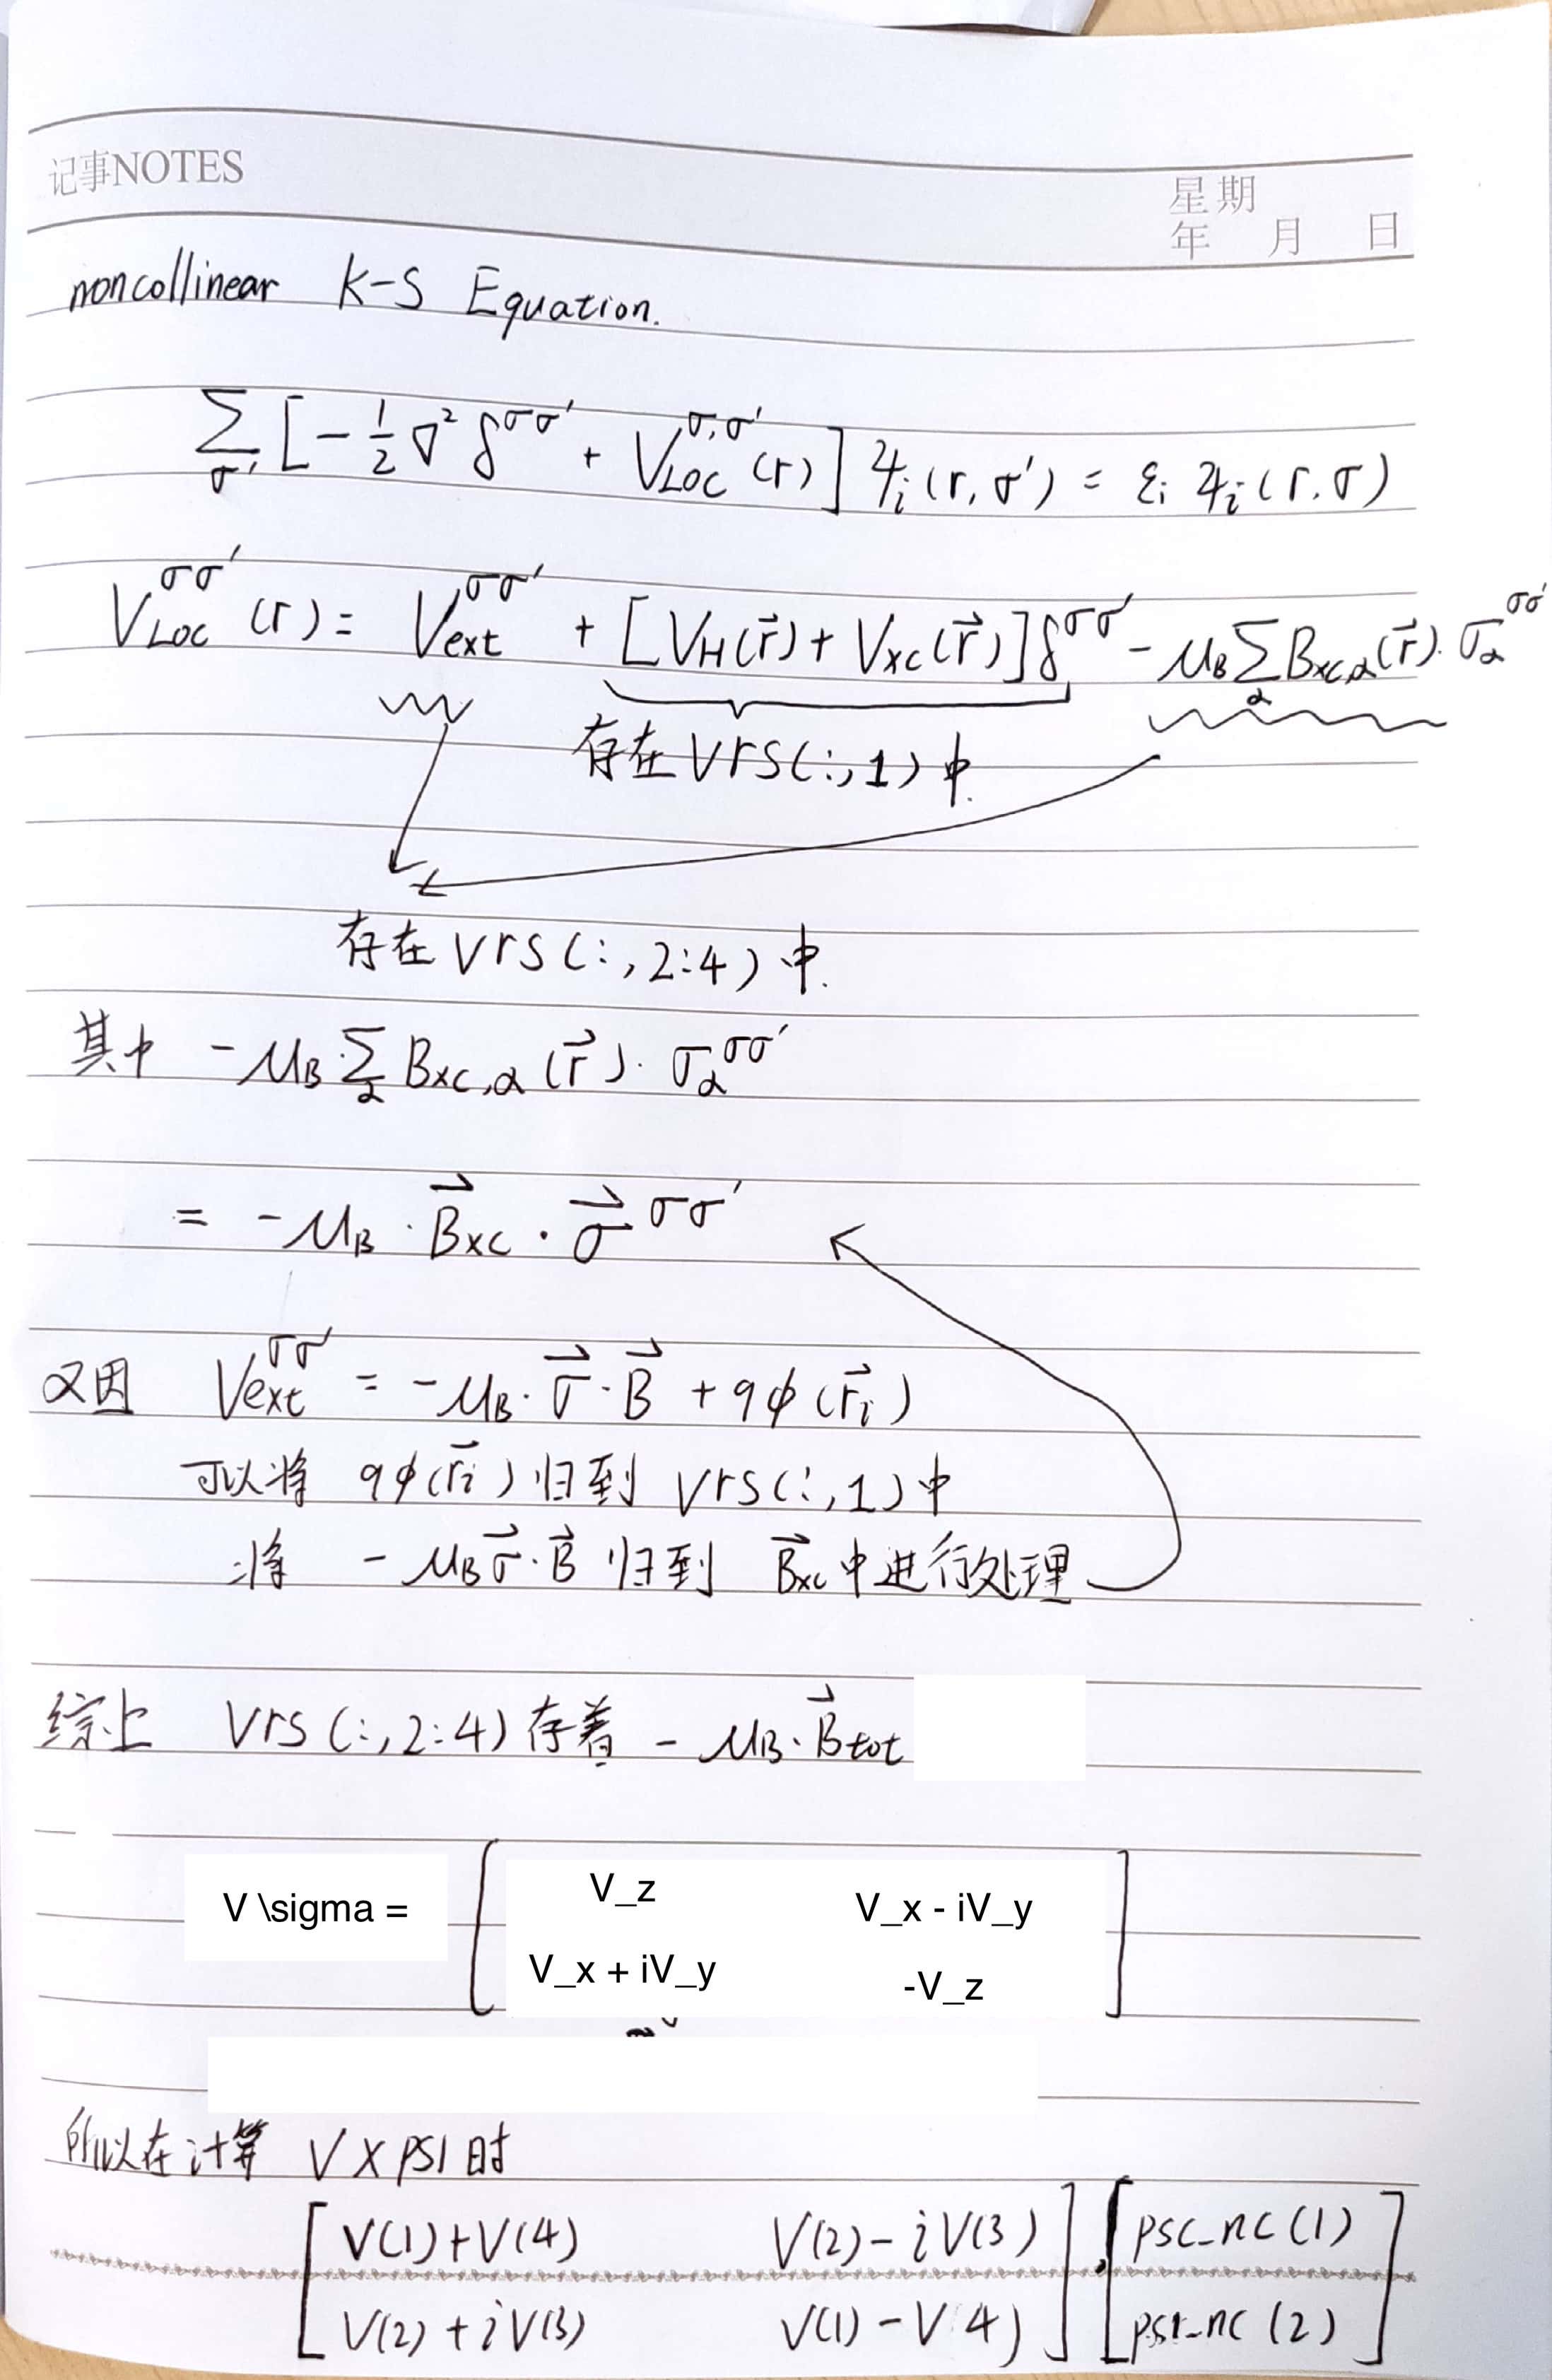 记事NOTES
星期
年 月 日
noncollinear K-S Equation.
∑_{σ'} [-½∇² δ^{σσ'} + V_{LOC}^{σ,σ'}(r)] ψ_i(r,σ') = ε_i ψ_i(r.σ)
V_{LOC}^{σσ'}(r) = V_{ext}^{σσ'} + [V_H(r⃗) + V_{xc}(r⃗)]δ^{σσ'} - μ_B ∑_α B_{xc,α}(r⃗)·σ_α^{σσ'}
存在 Vrs(:,1) 中.
存在 Vrs(:,2:4) 中.
其中 -μ_B·∑_α B_{xc,α}(r⃗)·σ_α^{σσ'}
= -μ_B·B⃗_{xc}·σ⃗^{σσ'}
又因 V_{ext}^{σσ'} = -μ_B·σ⃗·B⃗ + qφ(r⃗_i)
可以将 qφ(r⃗_i) 归到 Vrs(:,1) 中
将 -μ_Bσ⃗·B⃗ 归到 B⃗_{xc} 中进行处理
综上 Vrs(:,2:4) 存着 -μ_B·B⃗_{tot}
V \sigma =
V_z V_x - iV_y
V_x + iV_y -V_z
所以在计算 V X PSI 时
[V(1)+V(4) V(2)-iV(3)] · [psc_nc(1)]
[V(2)+iV(3) V(1)-V(4)] [psi_nc(2)]